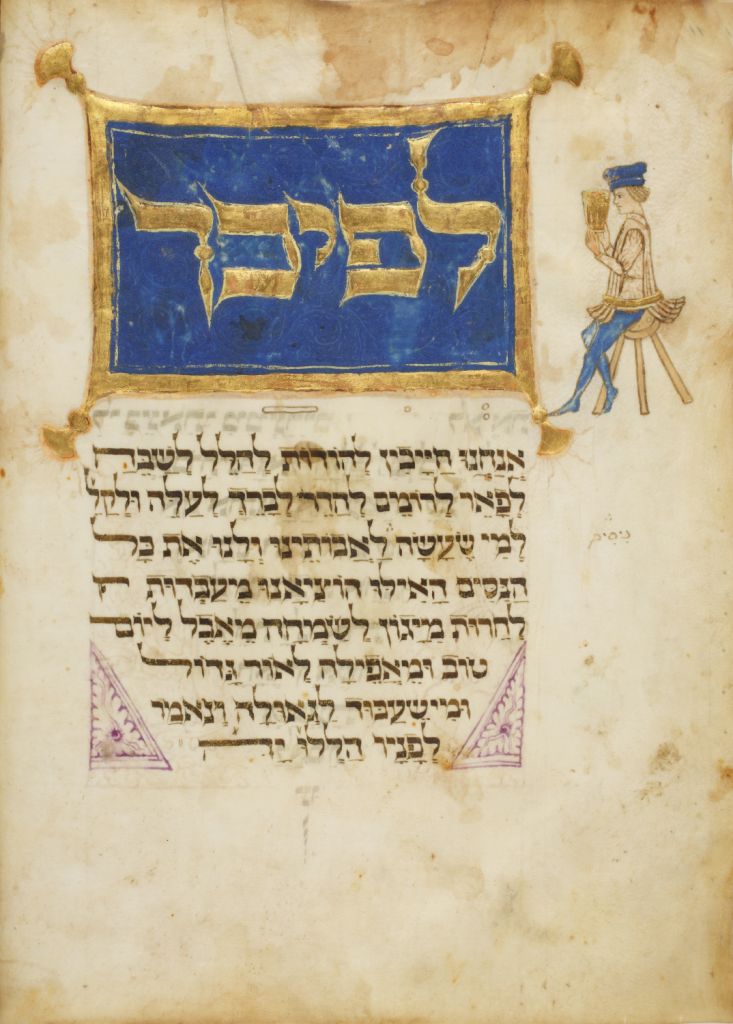 לפיכך
אנחנו חייבין להודות להלל לשבח
לפאר לרומם להדר לברך לעלה ולקלס
למי שעשה לאבותינו ולנו את כל
ניסים
הנסים האילו הוציאנו מעבדות
לחרות מיגון לשמחה מאבל ליום
טוב ומאפילה לאור גדול
ומישעבוד לגאולה ונאמר
לפניו הללו יה